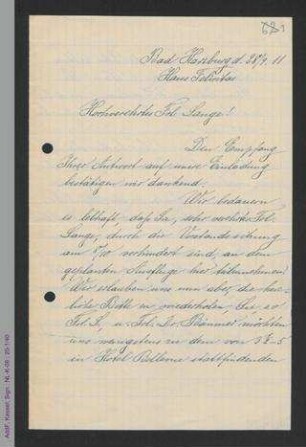 Bad Harzburg d. 28/9. 11
Haus Felicitas
Hochverehrtes Frl. Lange!
Den Empfang
Ihrer Antwort auf unsere Einladung
bestätigen wir dankend.
Wir bedauern
es lebhaft daß Sie, sehr verehrtes Frl.
Lange, durch die Vorstandssitzung
am /10 verhindert sind, an dem
geplanten Ausfluge hier teilzunehmen.
Wir erlauben uns nun aber, die
Bitte zu wiederholen, Sie so
Frl. u. Frl. Dr. Bäumer möchten
uns wenigstens zu dem von 3½-5
in Hotel Bellevue stattfindenden
AddF, Kassel; Sign.: NL-K-08 ; 25-1/40